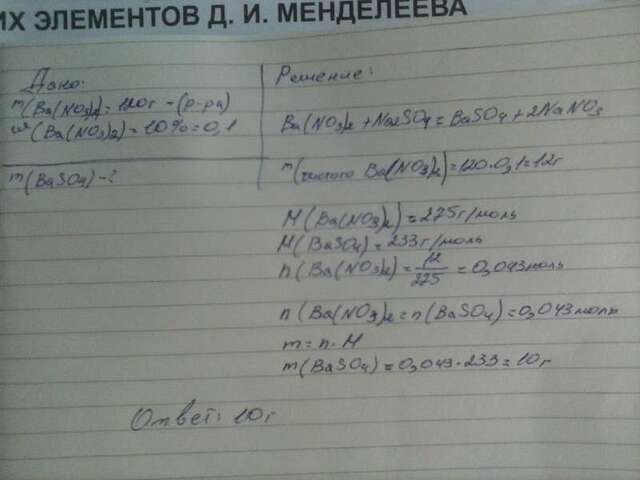 ИХ ЭЛЕМЕНТОВ Д. И. МЕНДЕЛЕЕВА
Дано:
m(Ba(NO3)2)=120г-(р-ра)
w(Ba(NO3)2)=10%=0,1
m(BaSO4)-?
Решение:
Ba(NO3)2+Na2SO4=BaSO4+2NaNO3
m(чистого Ba(NO3)2)=120·0,1=12г
M(Ba(NO3)2)=275г/моль
M(BaSO4)=233г/моль
n(Ba(NO3)2)=12/275=0,043моль
n(Ba(NO3)2=n(BaSO4)=0,043моль
m=n·M
m(BaSO4)=0,043·233=10г
Ответ: 10г